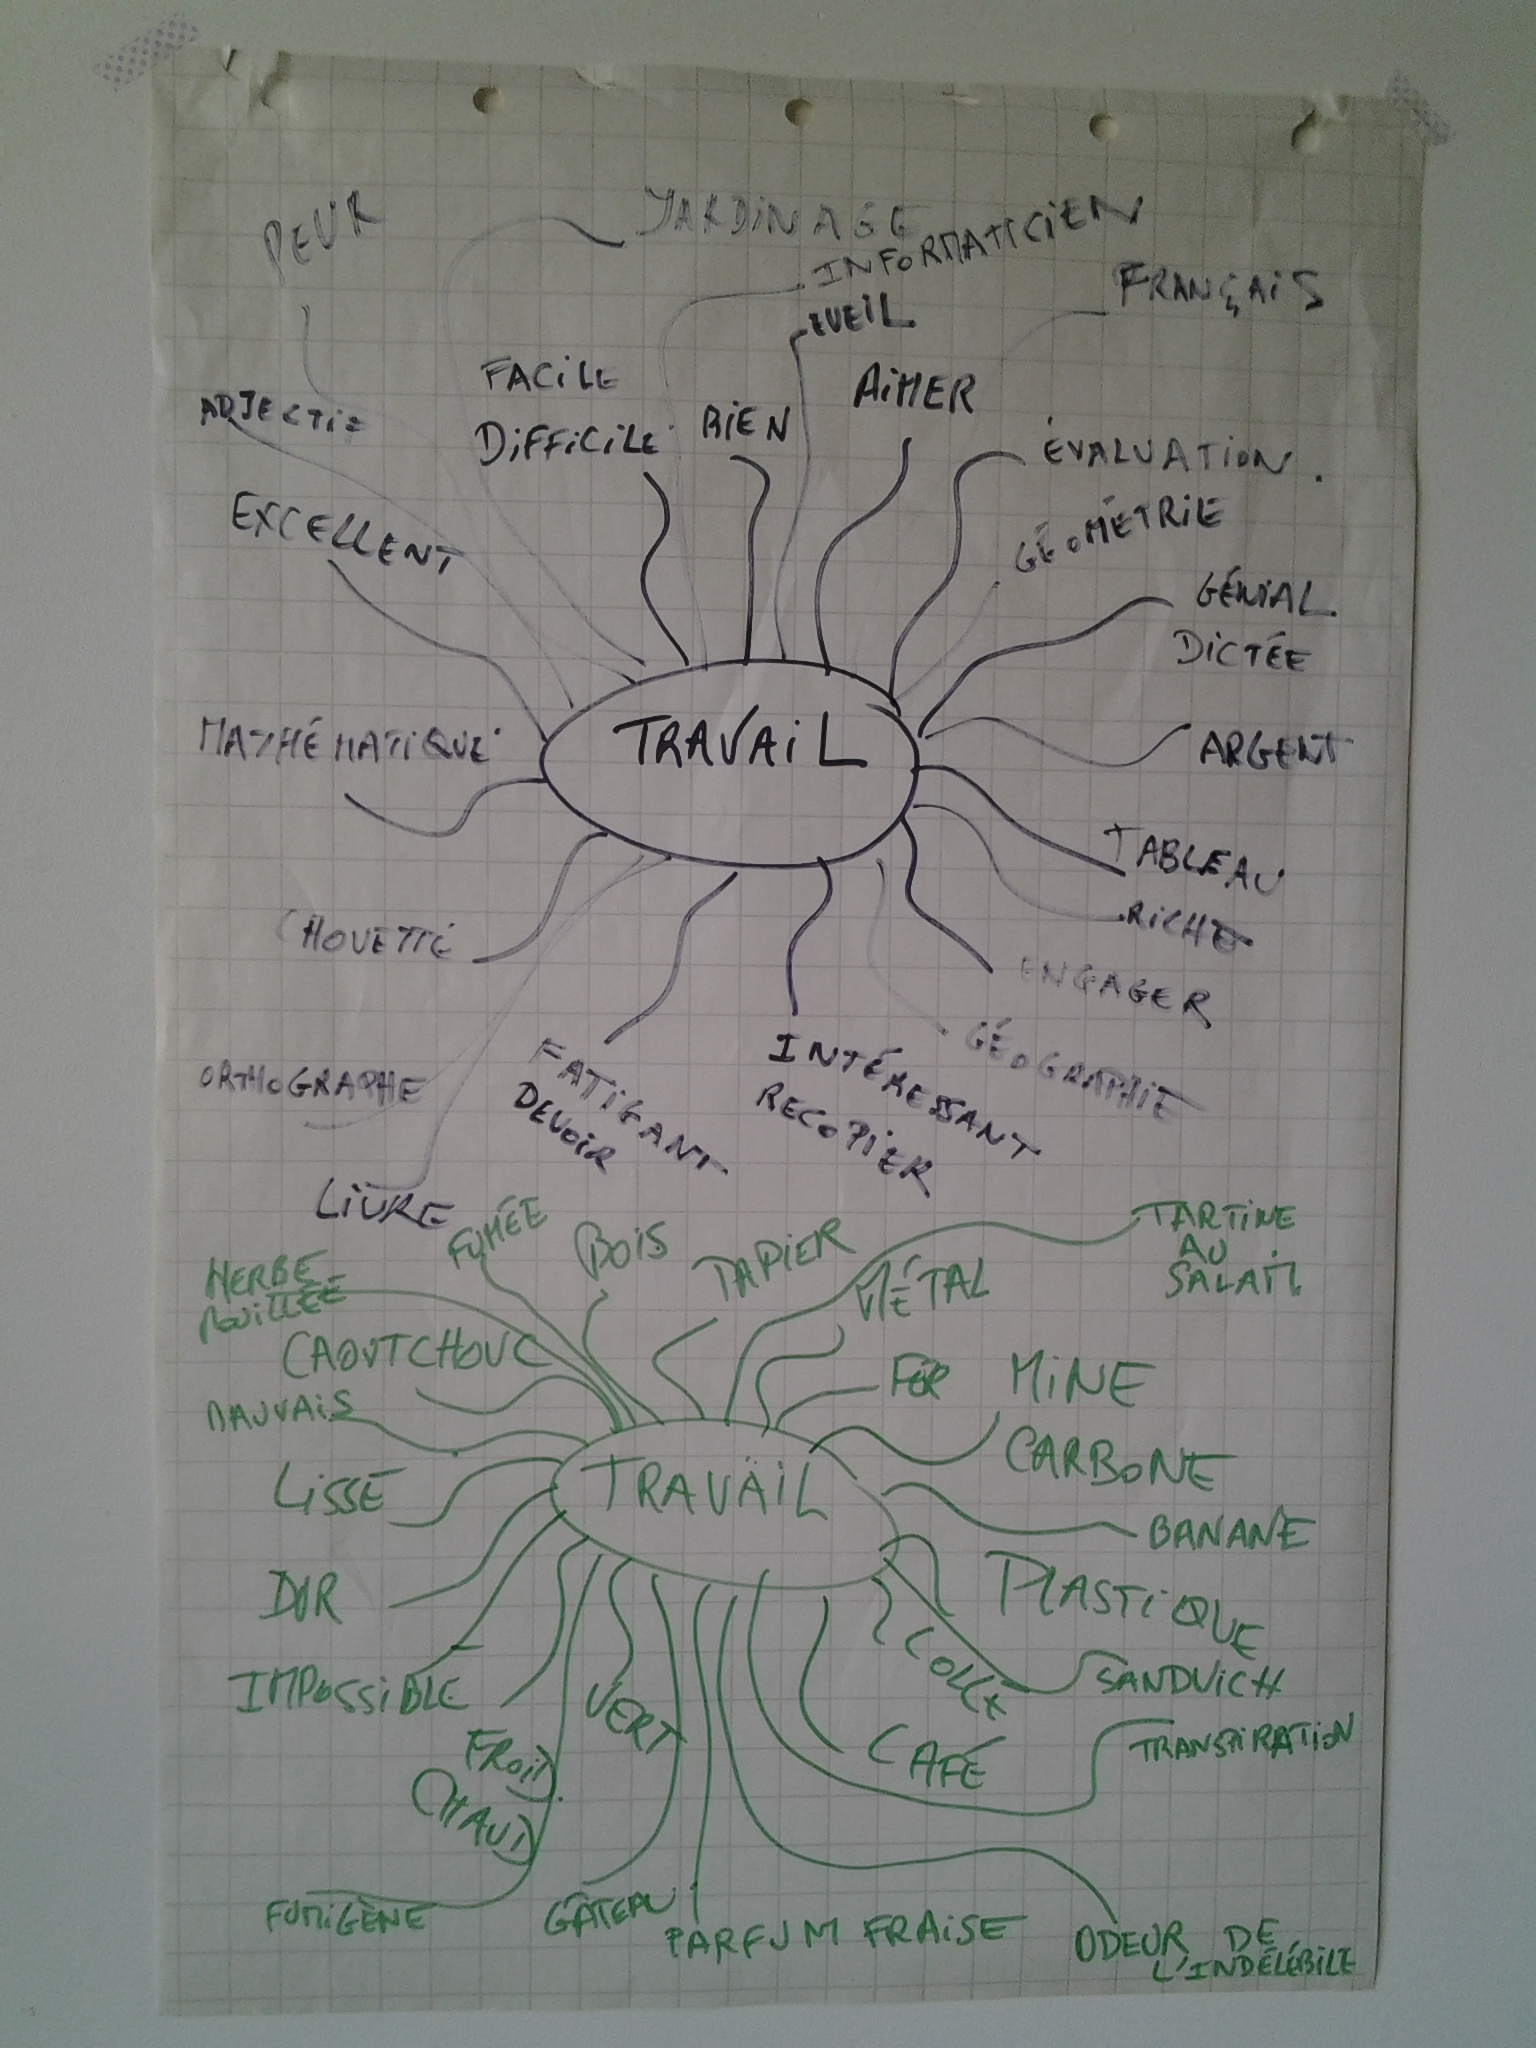 PEUR
JARDINAGE
INFORMATICIEN
FRANÇAIS
EVEIL
FACILE
DIFFICILE
BIEN
AIMER
ADJECTIF
ÉVALUATION.
EXCELLENT
GÉOMÉTRIE
GÉNIAL
DICTÉE
MATHÉMATIQUE
TRAVAIL
ARGENT
TABLEAU
RICHE
CHOUETTE
ENGAGER
GÉOGRAPHIE
ORTHOGRAPHE
FATIGANT
DEVOIR
INTÉRESSANT
RECOPIER
LIVRE
FUMÉE
BOIS
PAPIER
TARTINE
AU
SALAMI
HERBE
MOUILLÉE
MÉTAL
CAOUTCHOUC
FER
MINE
CARBONE
MAUVAIS
LISSE
TRAVAIL
BANANE
DUR
PLASTIQUE
COLLE
SANDWICH
IMPOSSIBLE
VERT
FROID
CHAUD
CAFÉ
TRANSPIRATION
FUMIGÈNE
GÂTEAU
PARFUM FRAISE
ODEUR DE
L'INDÉLÉBILE